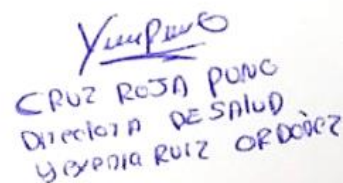 CRUZ ROJA PUNO
Directora DE SALUD
Yesenia RUIZ ORDOÑEZ